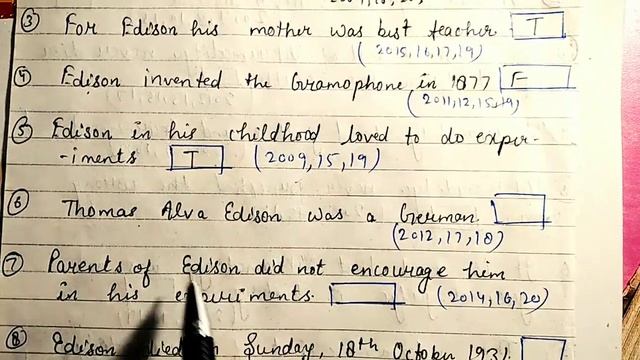 ③ For Edison his mother was best teacher. T
(2015,16,17,19)
④ Edison invented the Gramophone in 1877 F
(2011,12,15,19)
⑤ Edison in his childhood loved to do exper-
-iments T (2009,15,19)
⑥ Thomas Alva Edison was a German.
(2012,17,18)
⑦ Parents of Edison did not encourage him
in his (2014,16,20)
⑧ Sunday, 18th October 1931